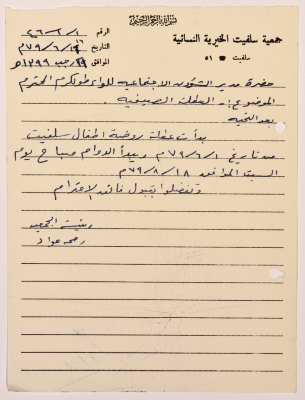 بسم الله الرحمن الرحيم
جمعية سلفيت الخيرية النسائية
سلفيت ☎ ٥١
الرقم ٢٦/٢/١
التاريخ ٧٩/٦/١٦م
الموافق رجب ١٣٩٩هـ
حضرة مدير الشؤون الاجتماعية للواء طولكرم المحترم
الموضوع :- العطلة الصيفية .
بعد التحية
بدأت عطلة روضة اطفال سلفيت
من تاريخ ٧٩/٦/١م ويبدأ الدوام صباح يوم
السبت الموافق ٧٩/٨/١٨م
وتفضلوا بقبول فائق الاحترام
رئيسة الجمعية
عواد